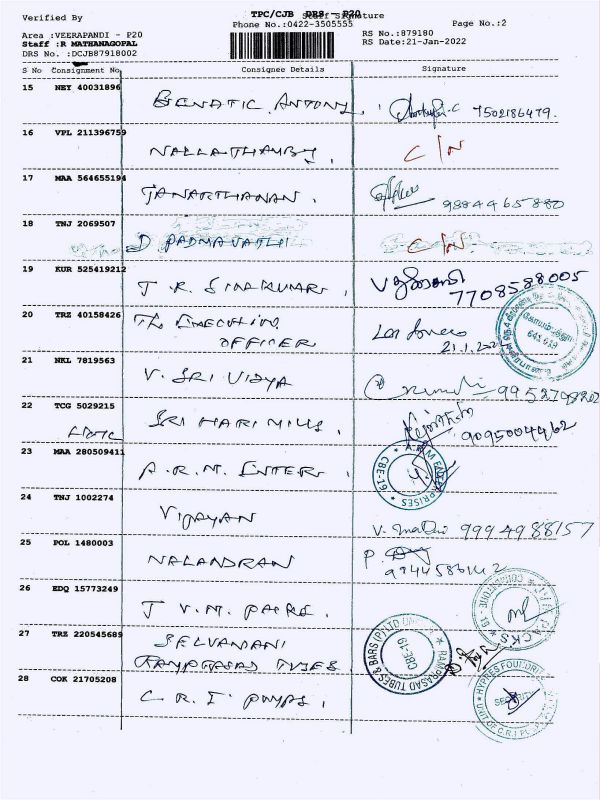 TPC/CJB DRS - P20
Verified By Staff Signature
Phone No.:0422-3505555 Page No.:2
Area :VEERAPANDI - P20 RS No.:879180
Staff :R MATHANAGOPAL RS Date:21-Jan-2022
DRS No. :DCJB87918002
S No Consignment No Consignee Details Signature
15 NEY 40031896 BENATIC ANTONY 7502186479.
16 VPL 211396759 NALLATHAMBY, C/N
17 MAA 564655194 JANARTHANAN. 9884465880
18 TNJ 2069507 D PADMAVATHI C/N
19 KUR 525419212 T.R. SIVAKUMARI, 7708588005
20 TRZ 40158426 THE EXECUTIVE
OFFICER 21.1.202
கோயம்புத்தூர்
641 619
21 NKL 7819563 V. SRI VIDYA 9952798202
22 TCG 5029215 SRI HARI MILLS, 9095004462
23 MAA 280509411 A.R.M. ENTER,
CBE-19
24 TNJ 1002274 VIJAYAN V. Mathi 9994988157
25 POL 1480003 NALANDRAN P. 9944586142
26 EDQ 15773249 J V.M. PACKS.
27 TRZ 220545689 SELVAMANI
RAMPRASAD TUBES
RAMPRASAD TUBES & BARS (P) LTD
CBE-19
28 COK 21705208 C.R.I PUMPS,
HYPRES FOUNDRY
SECURITY
UNIT OF C.R.I